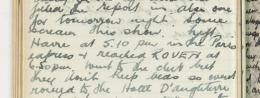 report in also one
for tomorrow night. Some
scream this show. Left
Havre at 5.10 pm in the Paris
express & reached ROUEN at
6.50pm. Went to the club but
they don't keep beds so went
round to the Hotel D'Angleterre